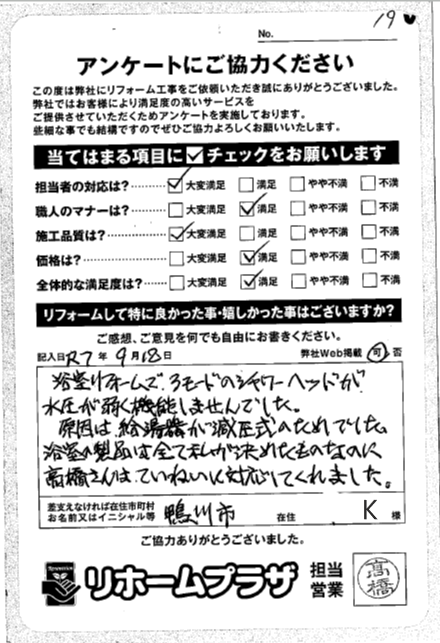 19
No.
アンケートにご協力ください
この度は弊社にリフォーム工事をご依頼いただき誠にありがとうございました。
弊社ではお客様により満足度の高いサービスを
ご提供させていただくためアンケートを実施しております。
些細な事でも結構ですのでぜひご協力よろしくお願いいたします。
当てはまる項目に☑チェックをお願いします
担当者の対応は?………… ☑大変満足 □満足 □やや不満 □不満
職人のマナーは?………… □大変満足 ☑満足 □やや不満 □不満
施工品質は?………… ☑大変満足 □満足 □やや不満 □不満
価格は?………… □大変満足 ☑満足 □やや不満 □不満
全体的な満足度は?…… □大変満足 ☑満足 □やや不満 □不満
リフォームして特に良かった事・嬉しかった事はございますか?
ご感想、ご意見を何でも自由にお書きください。
記入日R7年9月18日 弊社Web掲載 可・否
浴室リフォームで、3モードのシャワーヘッドが
水圧が弱く機能しませんでした。
原因は給湯器が減圧式のためでした。
浴室の製品は全て私が決めたものなのに
高橋さんはていねいに対応してくれました。
差支えなければ在住市町村
お名前又はイニシャル等 鴨川市 在住 K 様
ご協力ありがとうございました。
リホームプラザ
担当
営業
高橋